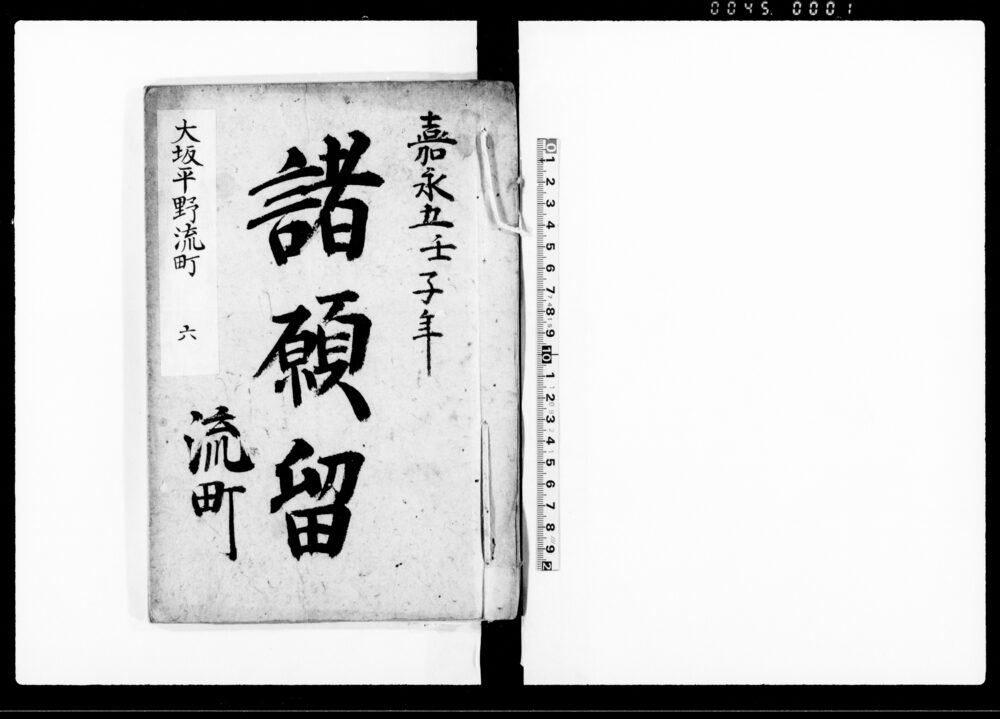 0045. 0001
嘉永五壬子年
諸願留
流町
大坂平野流町 六
0 1 2 3 4 5 6 7 8 9 10 1 2 3 4 5 6 7 8 9 2